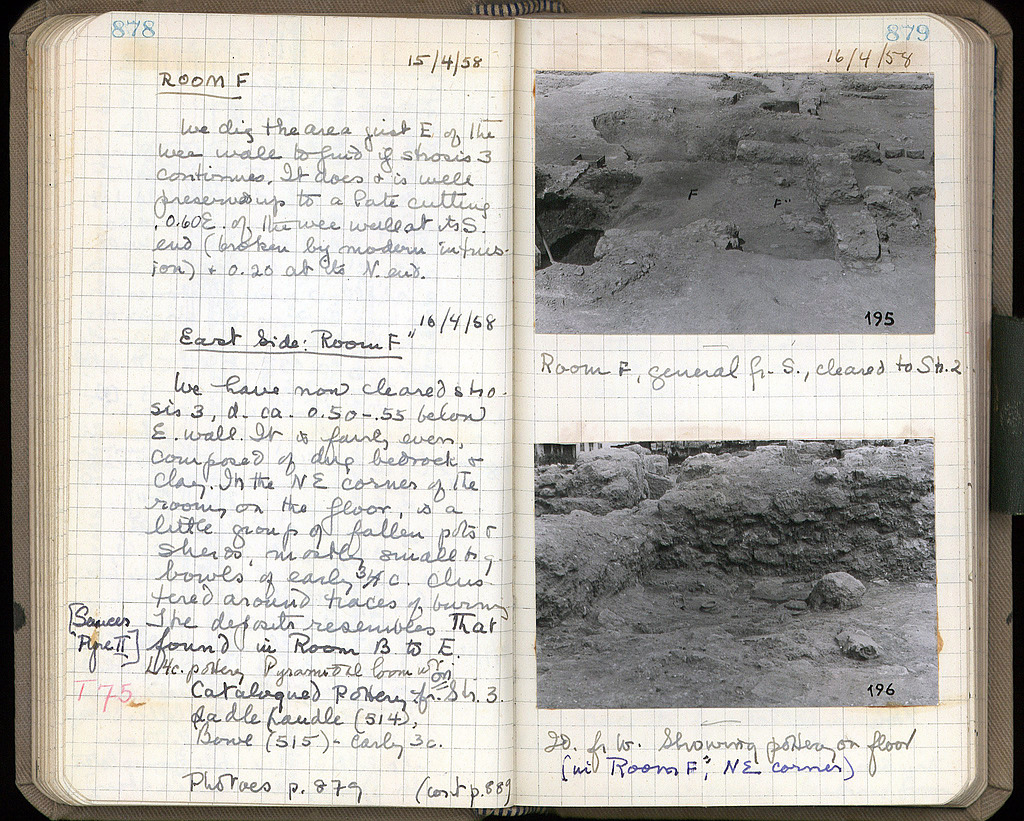 878
15/4/58
ROOM F
We dig the area just E of the
wee wall to find if strosis 3
continues. It does & is well
preserved up to a late cutting
.0.60E. of the wee wall at its S.
end (broken by modern intrus-
ion) & 0.20 at its N. end.
16/4/58
East Side: Room F"
We have now cleared stro-
sis 3, d. ca. 0.50-.55 below
E. wall. It is fairly even,
composed of dug bedrock &
clay. In the NE corner of the
room, on the floor, is a
little group of fallen pots &
sherds, mostly small
bowls of early 3/4 c. clus
tered around traces of burning
[Saucer
Pyre II]
The deposit resembles that
found in Room B to E.
L4c. pottery Pyramidal loom wt
T 75
Catalogued Pottery fr. Str. 3
Ladle handle (514),
Bowl (515) - early 3c.
Photoes p. 879
(con't p. 889
879
16/4/58
F
F"
195
Room F, general fr. S., cleared to Str. 2
196
Id. fr W. Showing pottery on floor
(in Room F", NE corner)